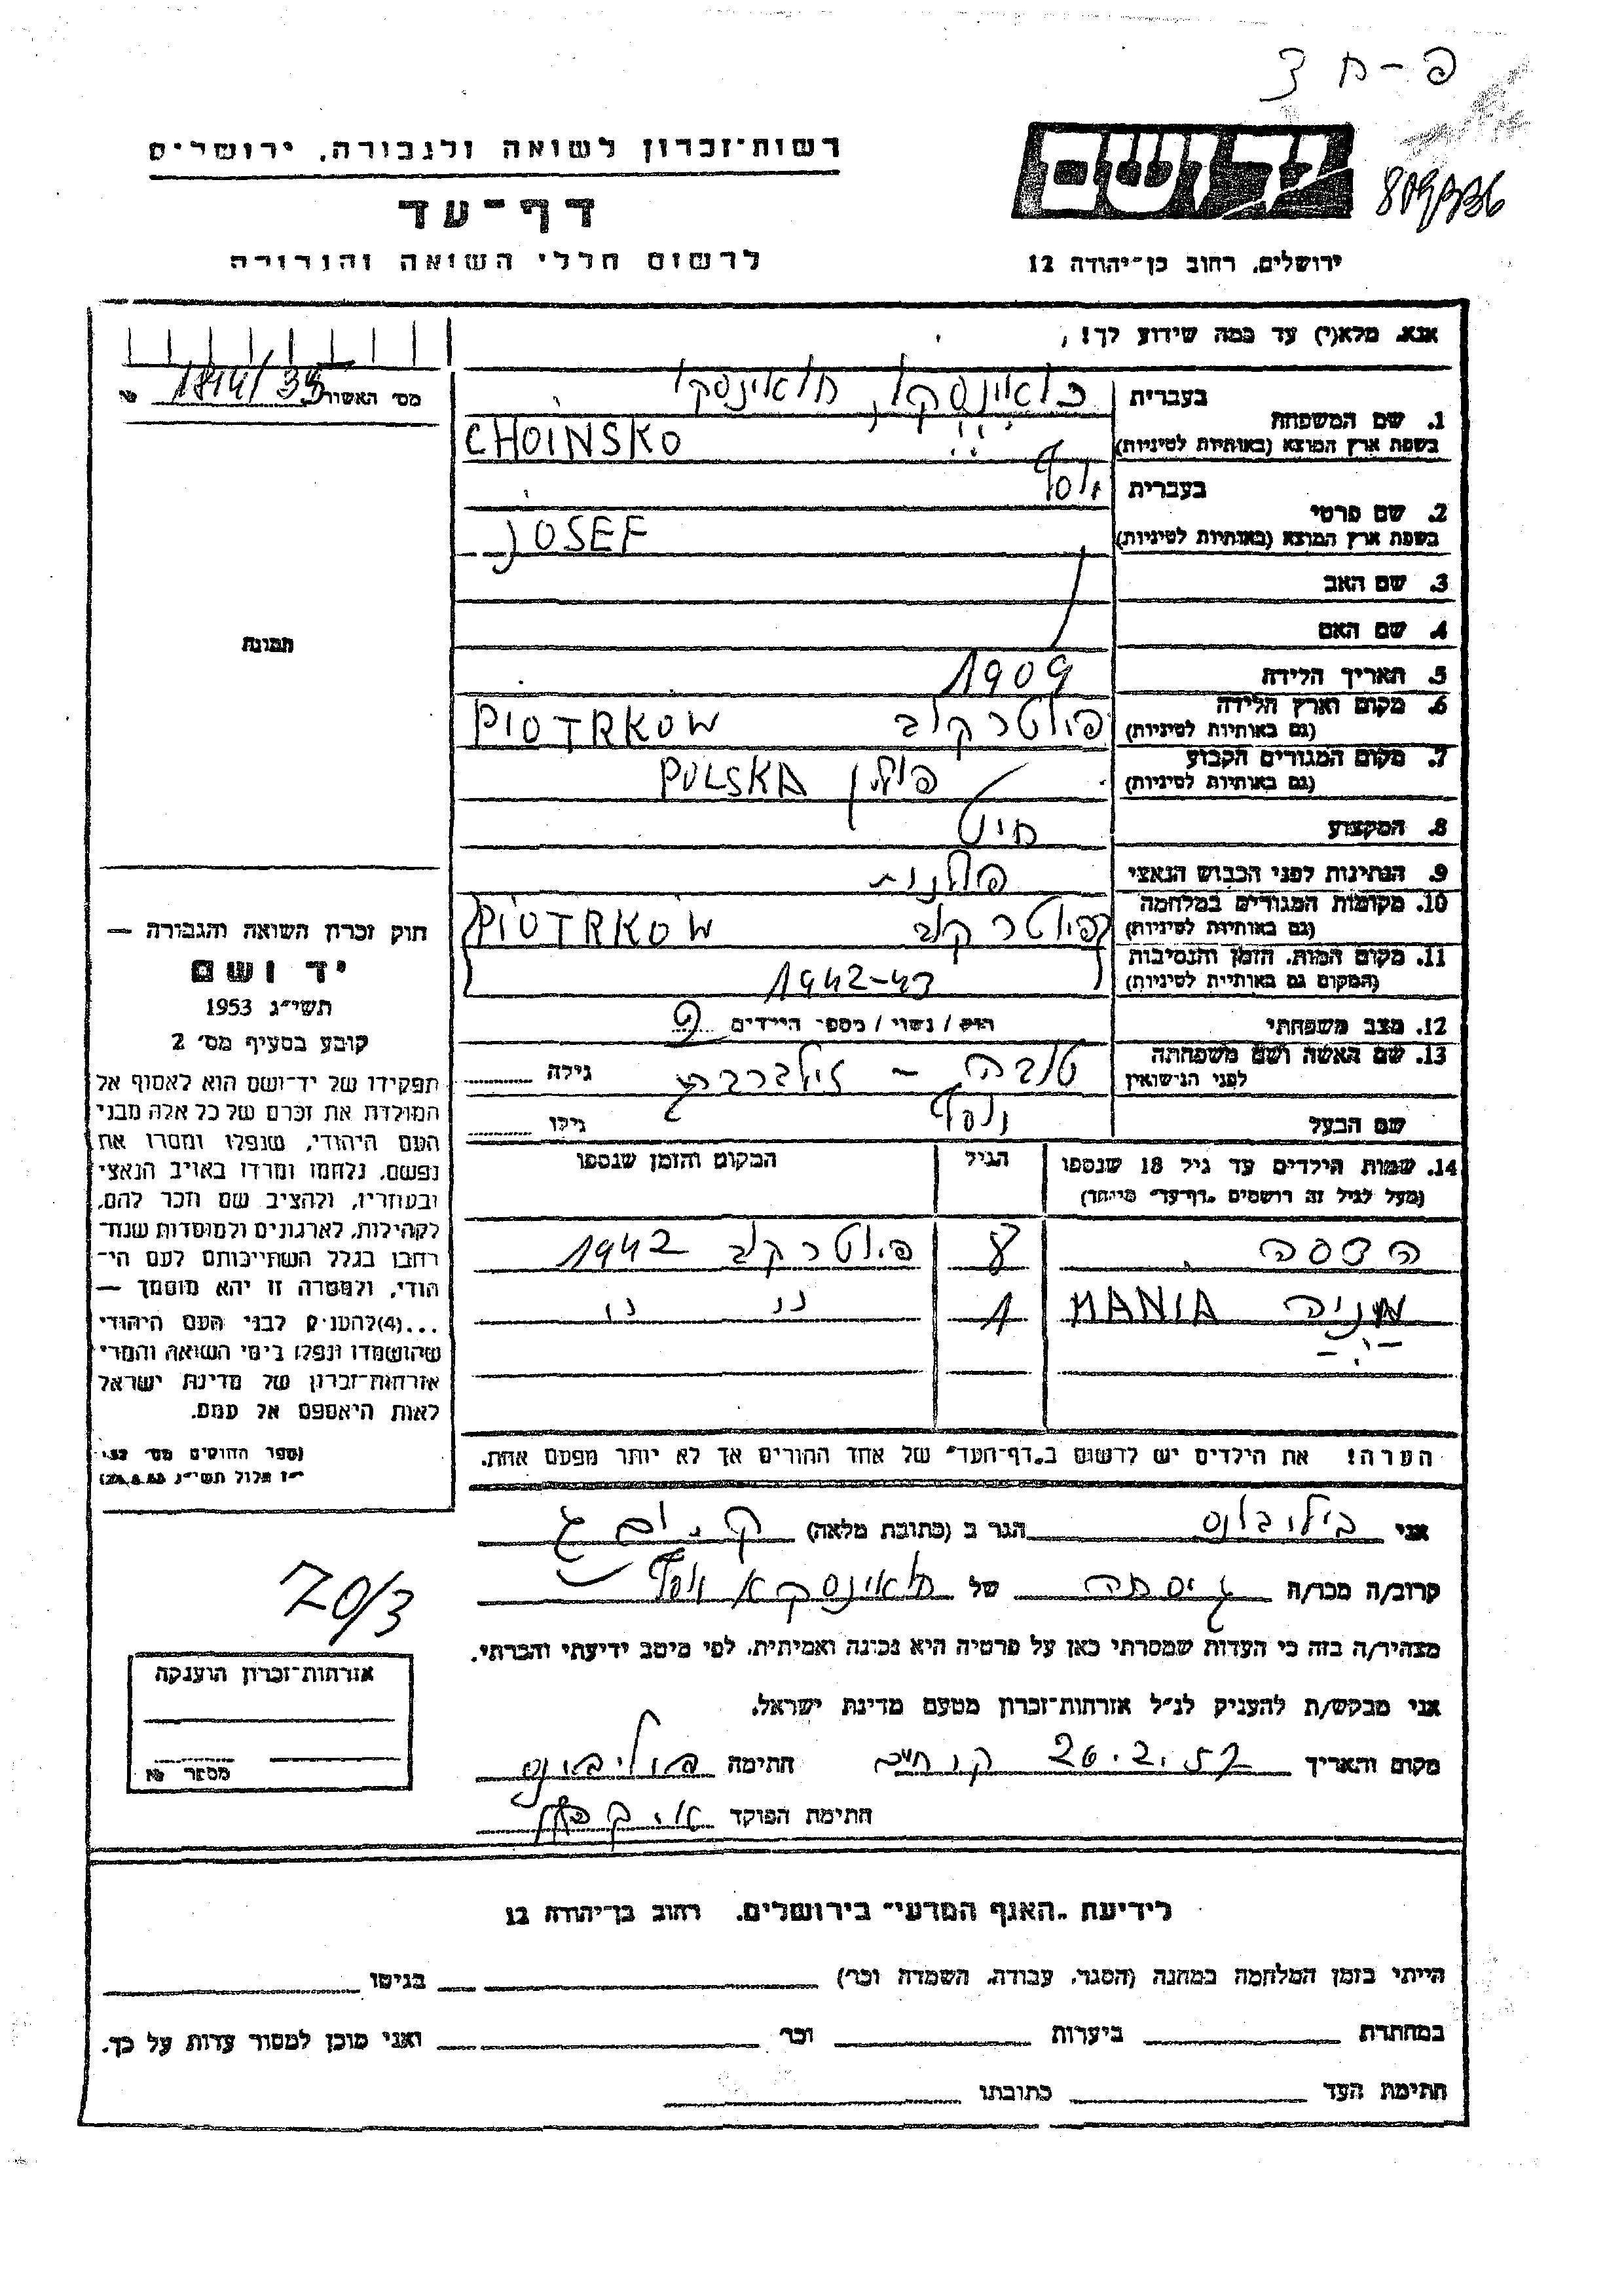 פ - ח 3
רשות־זכרון לשואה ולגבורה, ירושלים
יד ושם
דף־עד
לרשום חללי השואה והגבורה
ירושלים, רחוב בן־יהודה 12
אנא, מלא(י) עד כמה שידוע לך!
מס׳ האשור 1844/39 №
1. שם המשפחה
בעברית
בשפת ארץ המוצא (באותיות לטיניות)
CHOINSKO
2. שם פרטי
בעברית יוסף
בשפת ארץ המוצא (באותיות לטיניות)
JOSEF
3. שם האב
4. שם האם
תמונה
5. תאריך הלידה 1909
6. מקום וארץ הלידה
(גם באותיות לטיניות) פיוטרקוב PIOTRKOW
7. מקום המגורים הקבוע
(גם באותיות לטיניות) פולין POLSKA
8. המקצוע חייט
9. הנתינות לפני הכבוש הנאצי פולנית
10. מקומות המגורים במלחמה
(גם באותיות לטיניות) פיוטרקוב PIOTRKOW
11. מקום המות, הזמן והנסיבות
(המקום גם באותיות לטיניות) 1942-43
12. מצב משפחתי רוק / נשוי / מספר הילדים
13. שם האשה ושם משפחתה
לפני הנישואין טובה - זילברברג גילה
שם הבעל יוסף גילו
14. שמות הילדים עד גיל 18 שנספו
(מעל לגיל זה רושמים „דף־עד״ מיוחד)
הגיל
המקום והזמן שנספו
הדסה 8 פיוטרקוב 1942
מניה MANIA 1 " "
הערה! את הילדים יש לרשום ב„דף־העד״ של אחד ההורים אך לא יותר מפעם אחת.
חוק זכרון השואה והגבורה —
יד ושם
תשי״ג 1953
קובע בסעיף מס׳ 2
תפקידו של יד־ושם הוא לאסוף אל
המולדת את זכרם של כל אלה מבני
העם היהודי, שנפלו ומסרו את
נפשם, נלחמו ומרדו באויב הנאצי
ובעוזריו, ולהציב שם וזכר להם,
לקהילות, לארגונים ולמוסדות שנח־
רבו בגלל השתייכותם לעם הי־
הודי, ולמטרה זו יהא מוסמך —
...(4) להעניק לבני העם היהודי
שהושמדו ונפלו בימי השואה והמרי
אזרחות־זכרון של מדינת ישראל
לאות היאספם אל עמם.
(ספר החוקים מס׳ 132,
י״ז אלול תשי״ג 28.8.53)
אני הגר ב (כתובת מלאה)
קרוב/ה מכר/ה גיסתה של חואינסקא יוסף
מצהיר/ה בזה כי העדות שמסרתי כאן על פרטיה היא נכונה ואמיתית, לפי מיטב ידיעתי והכרתי.
אני מבקש/ת להעניק לנ״ל אזרחות־זכרון מטעם מדינת ישראל.
מקום ותאריך 26.2.57 חתימה
חתימת הפוקד
70/3
אזרחות־זכרון הוענקה
מספר №
לידיעת „האגף המדעי״ בירושלים, רחוב בן־יהודה 12
הייתי בזמן המלחמה במחנה (הסגר, עבודה, השמדה וכר׳) בגיטו
במחתרת ביערות וכר ואני מוכן למסור עדות על כך.
חתימת העד כתובתו